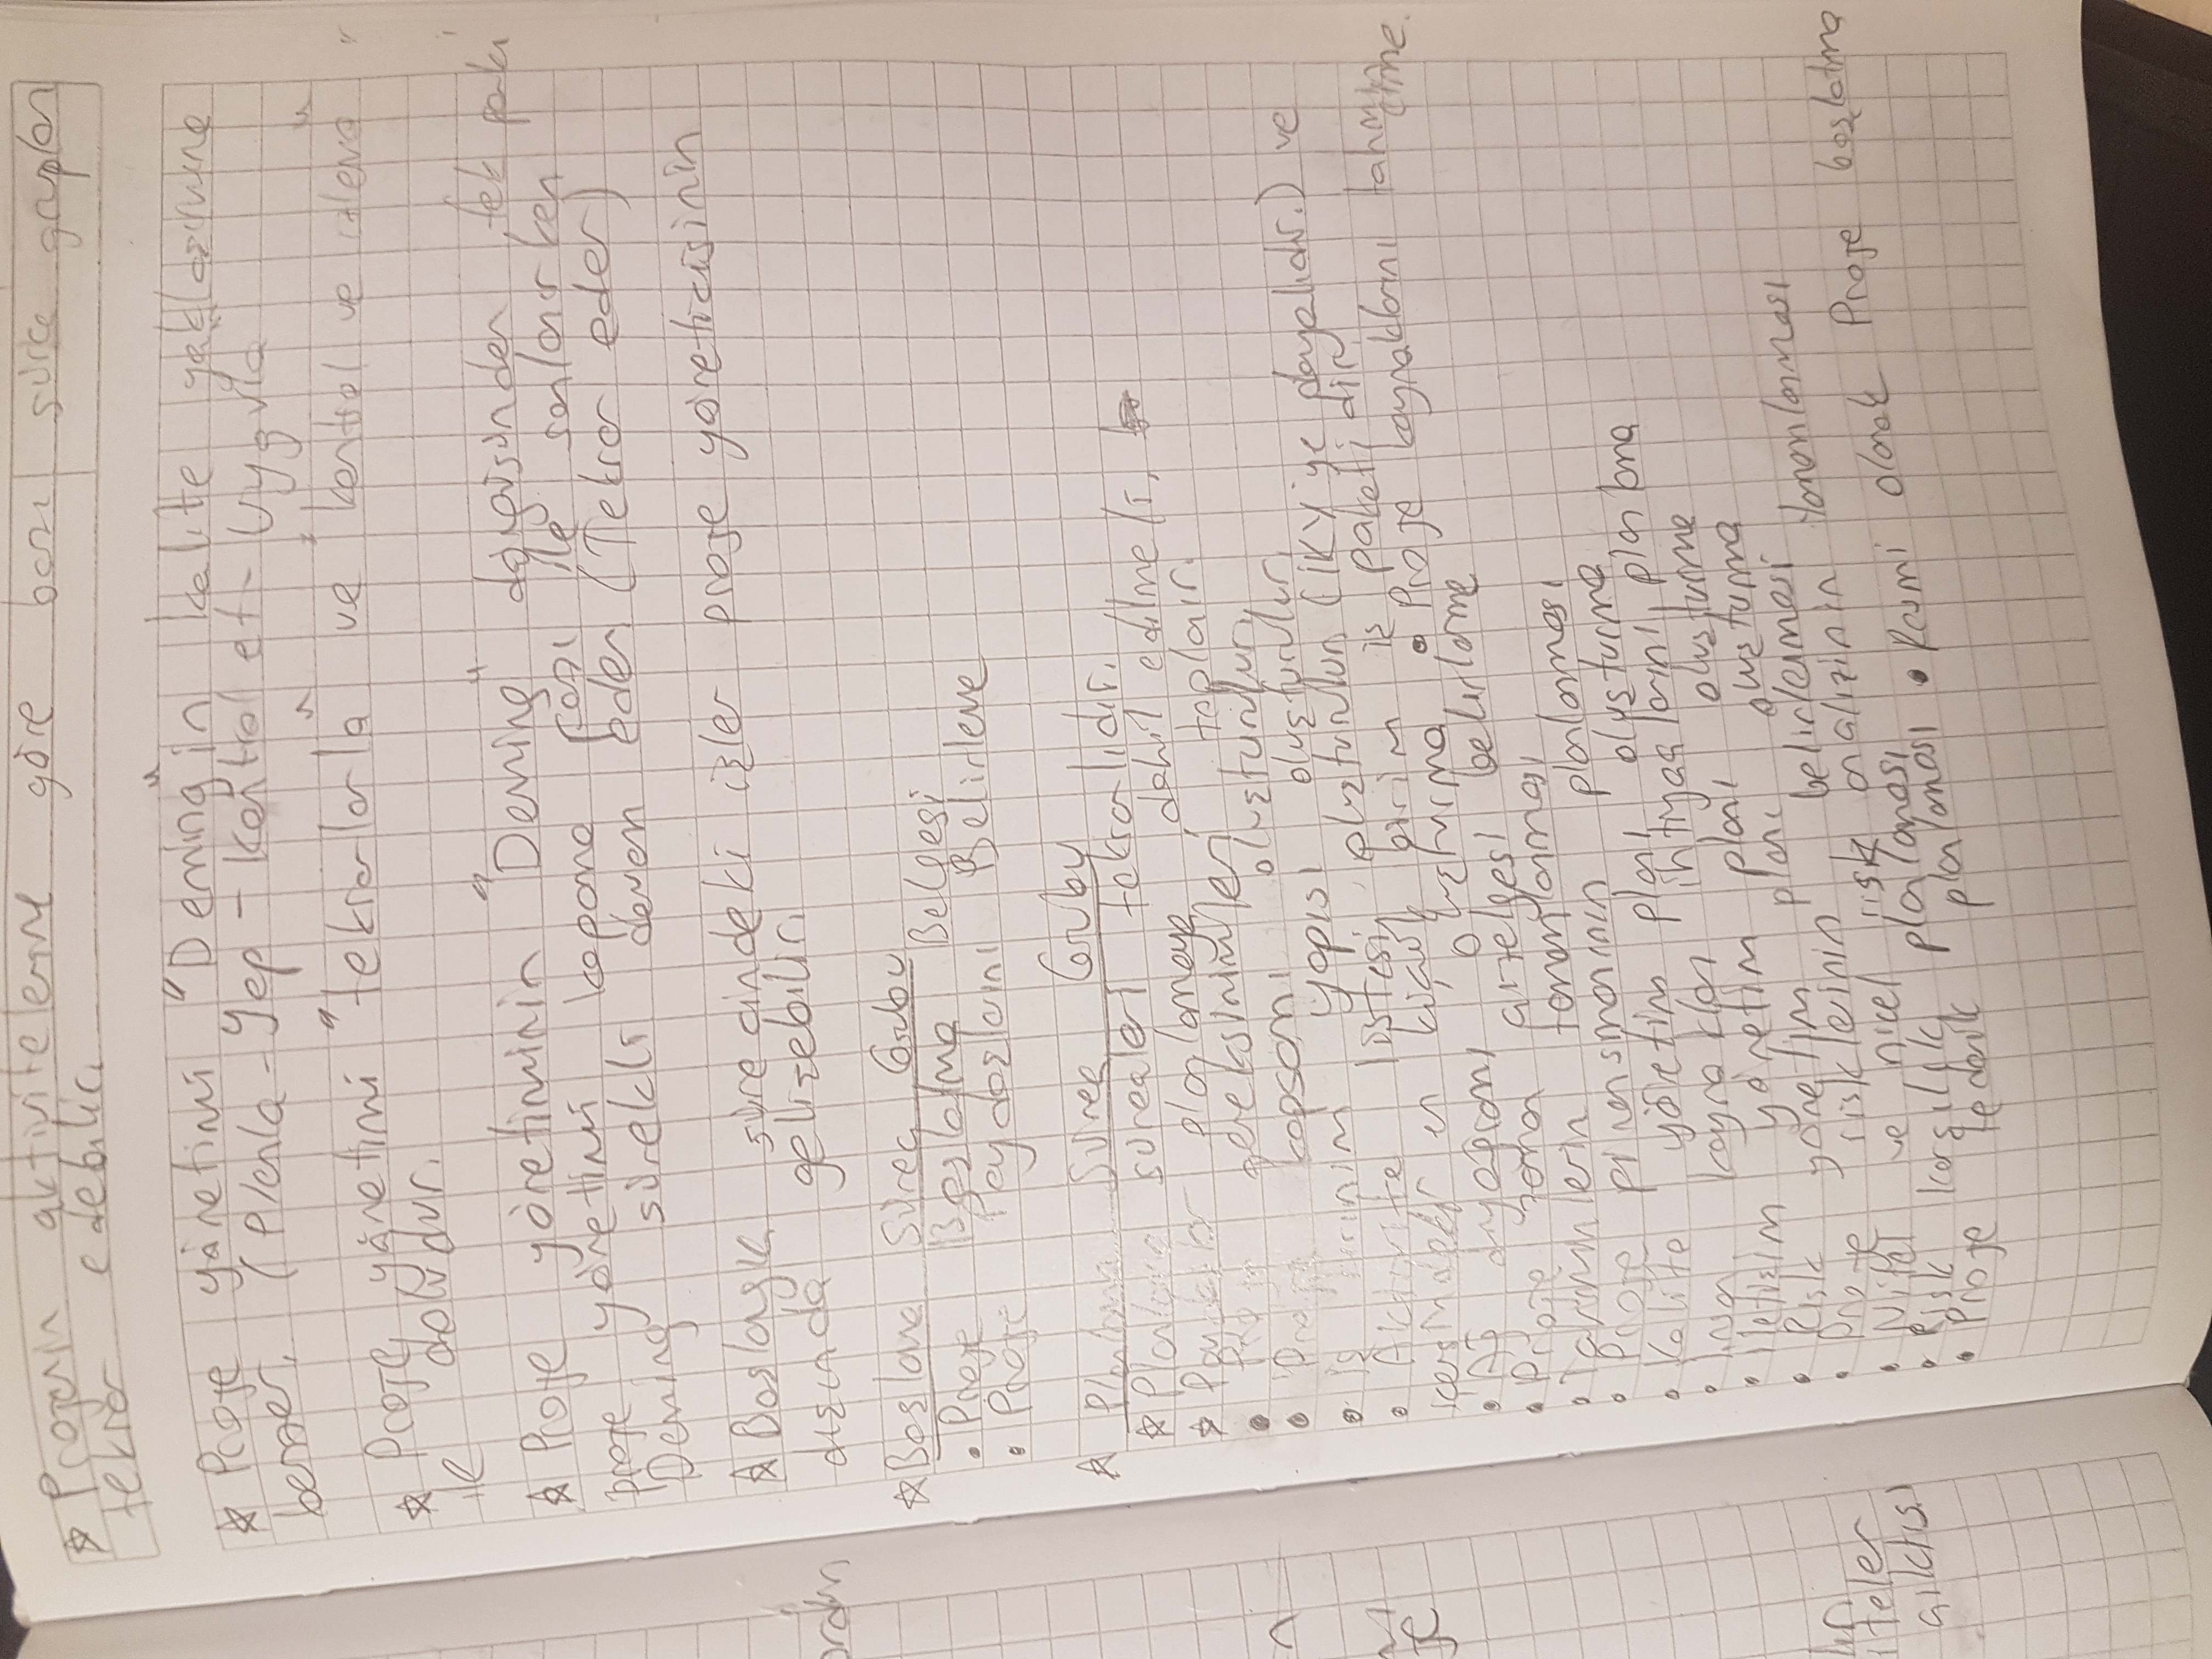 ☆ Projenin aktivitelerine göre bazı süreç grupları
tekrar edebilir.
☆ Proje yönetimi "Deming"in kalite yaklaşımına
benzer. (Planla - Yap - Kontrol et - Uygula
☆ Proje yönetimi "tekrarlarla" ve "kontrol ve izleme"
ile doludur.
☆ Proje yönetiminin "Deming" döngüsünden tek farkı
proje yönetimi kapama fazı ile sonlanırken
Deming sürekli devam eder (Tekrar eder)
☆ Baslangıç sürecindeki işler proje yöneticisinin
dışında gelişebilir.
☆ Başlama Süreç Grubu
• Proje Başlatma Belgesi
• Proje Paydaşlarını Belirleme
☆ Planlama Süreç Grubu
☆ Planlama süreçleri tekrarlıdır.
☆ Paydaşlar planlamaya dahil edilmeli,
• Proje gereksinimleri toplanır.
• Proje kapsamı oluşturulur.
• İş kırınım yapısı oluşturulur.
• Aktivite listesi oluşturulur (İKY'ye dayalıdır.) ve
en küçük birim iş paketidir
• Ağ diyagramı oluşturma • Proje kaynaklarını tahmin
etme.
• Proje zaman çizelgesi belirleme
• Tahminlerin tamamlanması
• Proje finansmanının planlanması
• Kalite yönetim planı oluşturma
• İnsan kaynakları ihtiyaçlarını planlama
• İletişim yönetim planı oluşturma
• Risk yönetim planı oluşturma
• Proje risklerinin belirlenmesi
• Nitel ve nicel risk analizinin tamamlanması
• Risk karşılık planlaması
• Proje tedarik planlaması • Resmi olarak Proje başlatma
ordan
n
je
iteler
çıktısı